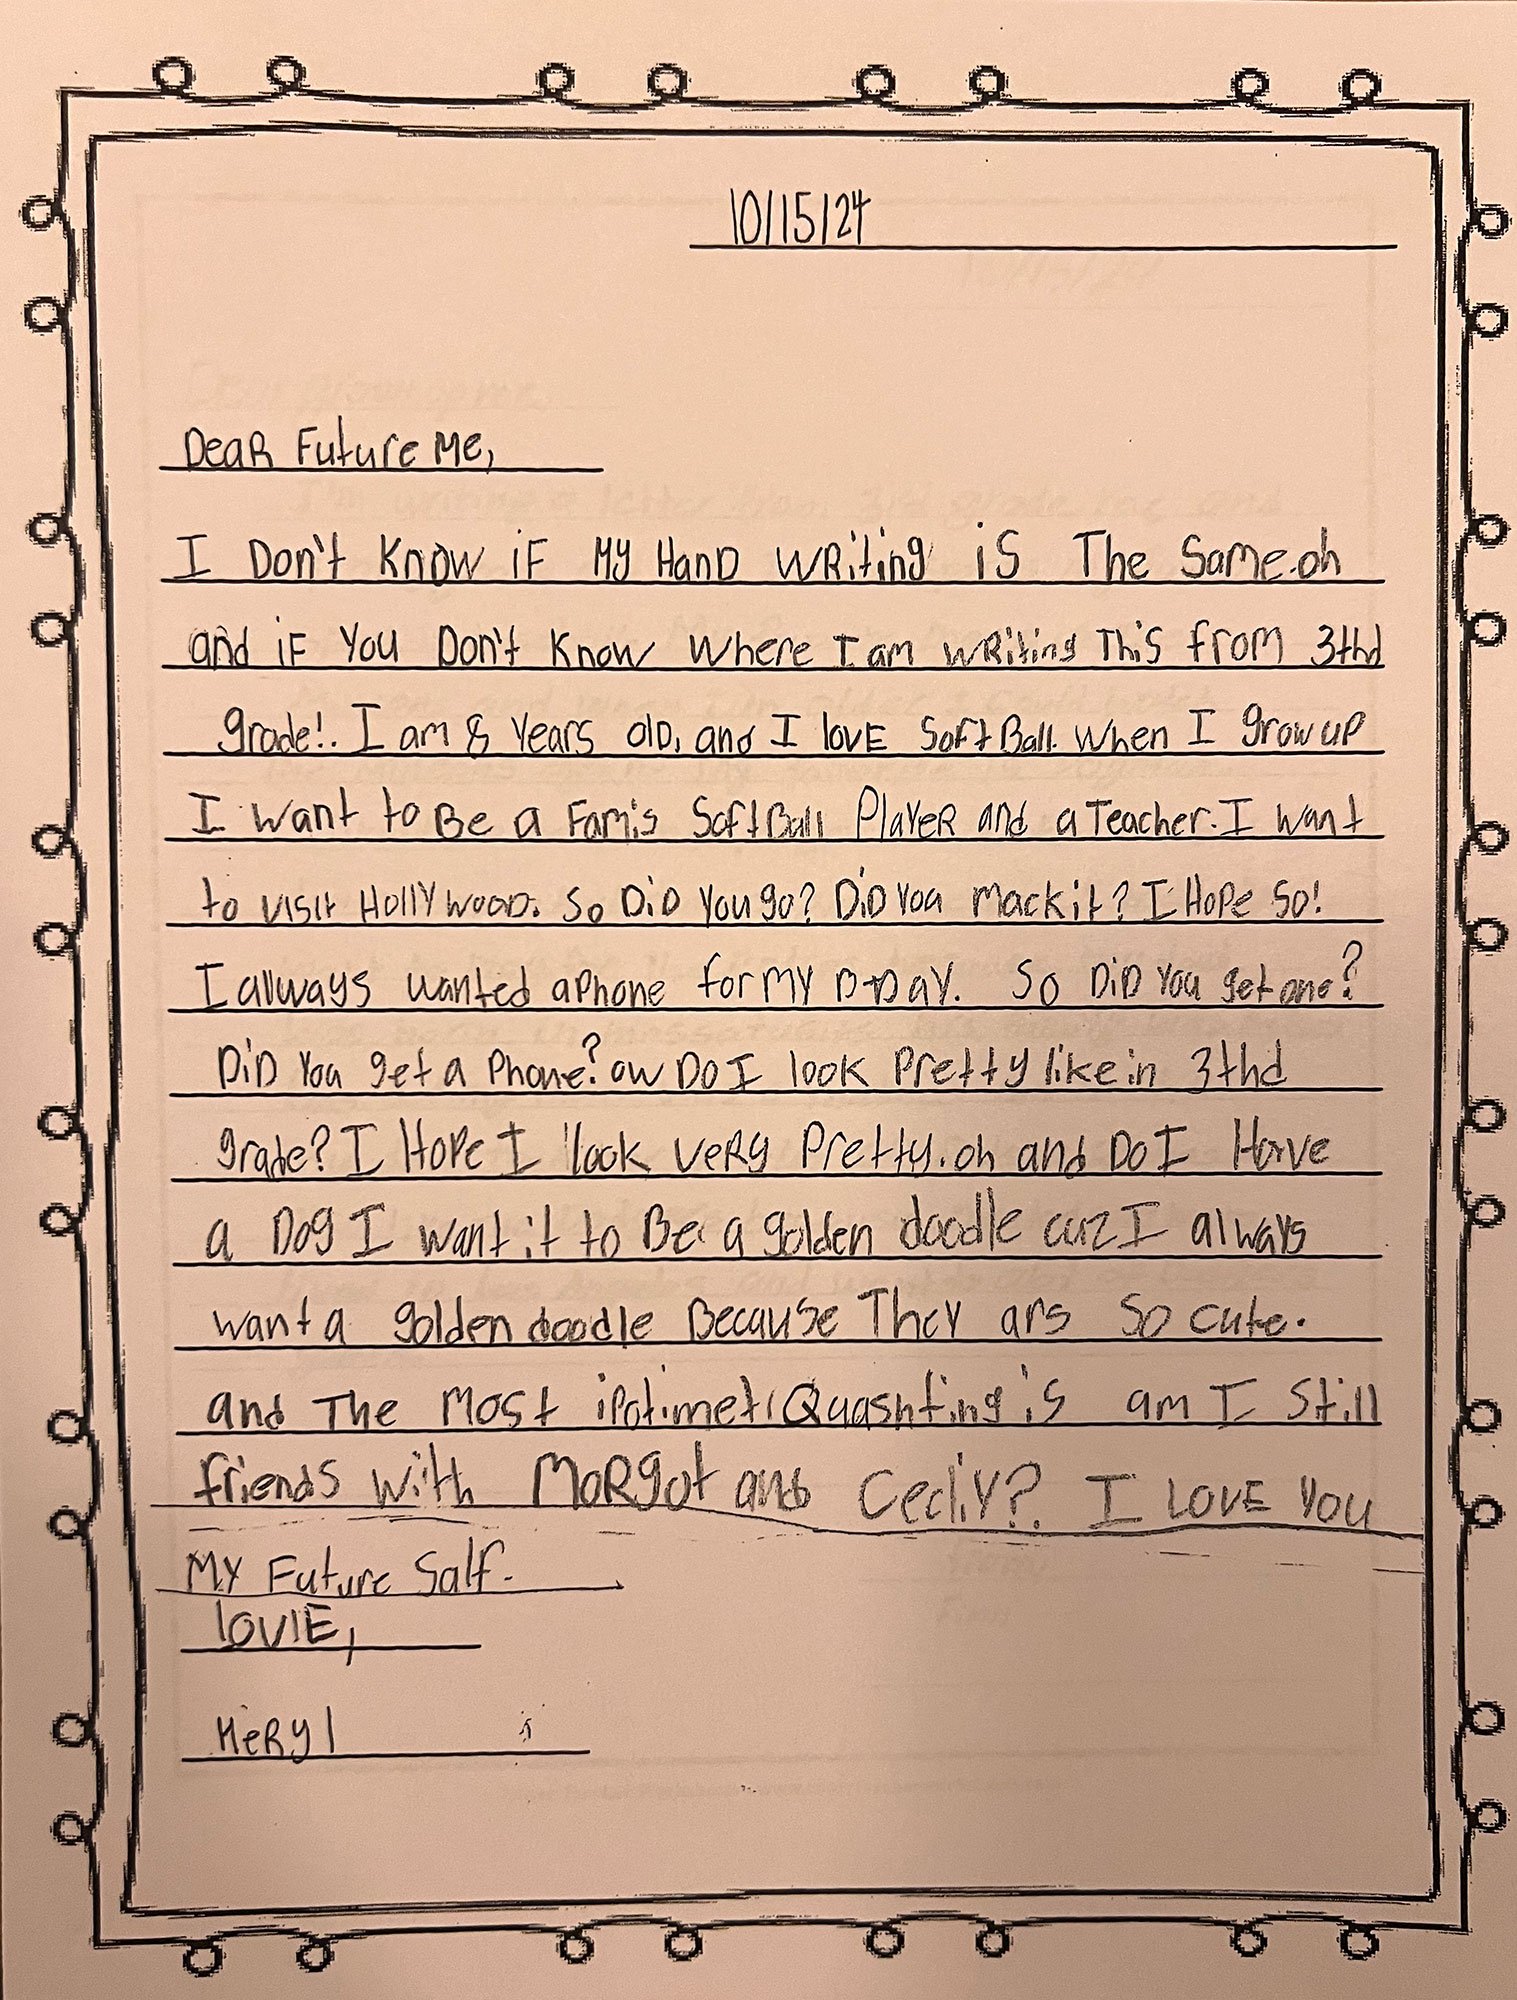 10/15/24
Dear Future Me,
I Don't Know iF My Hand WRiting is The Same.oh
and iF You Don't Know Where I am WRiting This from 3thd
grade!. I am 8 Years olD, and I lovE SoftBall. When I grow up
I want to Be a Famis SoftBall PlayeR and a Teacher. I want
to visit HollywooD. So DiD You go? DiD You mack it? I Hope So!
I allways wanted a Phone for my B-Day. So DiD You get one?
DiD You get a Phone? ow Do I look Pretty like in 3thd
grade? I Hope I look veRy Pretty. oh and Do I Have
a Dog I want it to Be a golden doodle cuz I always
want a golden doodle Because They ars So cute.
and The Most ipotimet Quashting is am I Still
friends with MoRgot and Cecliy? I LOVE You
My Future Salf.
lovIE,
MeRyl